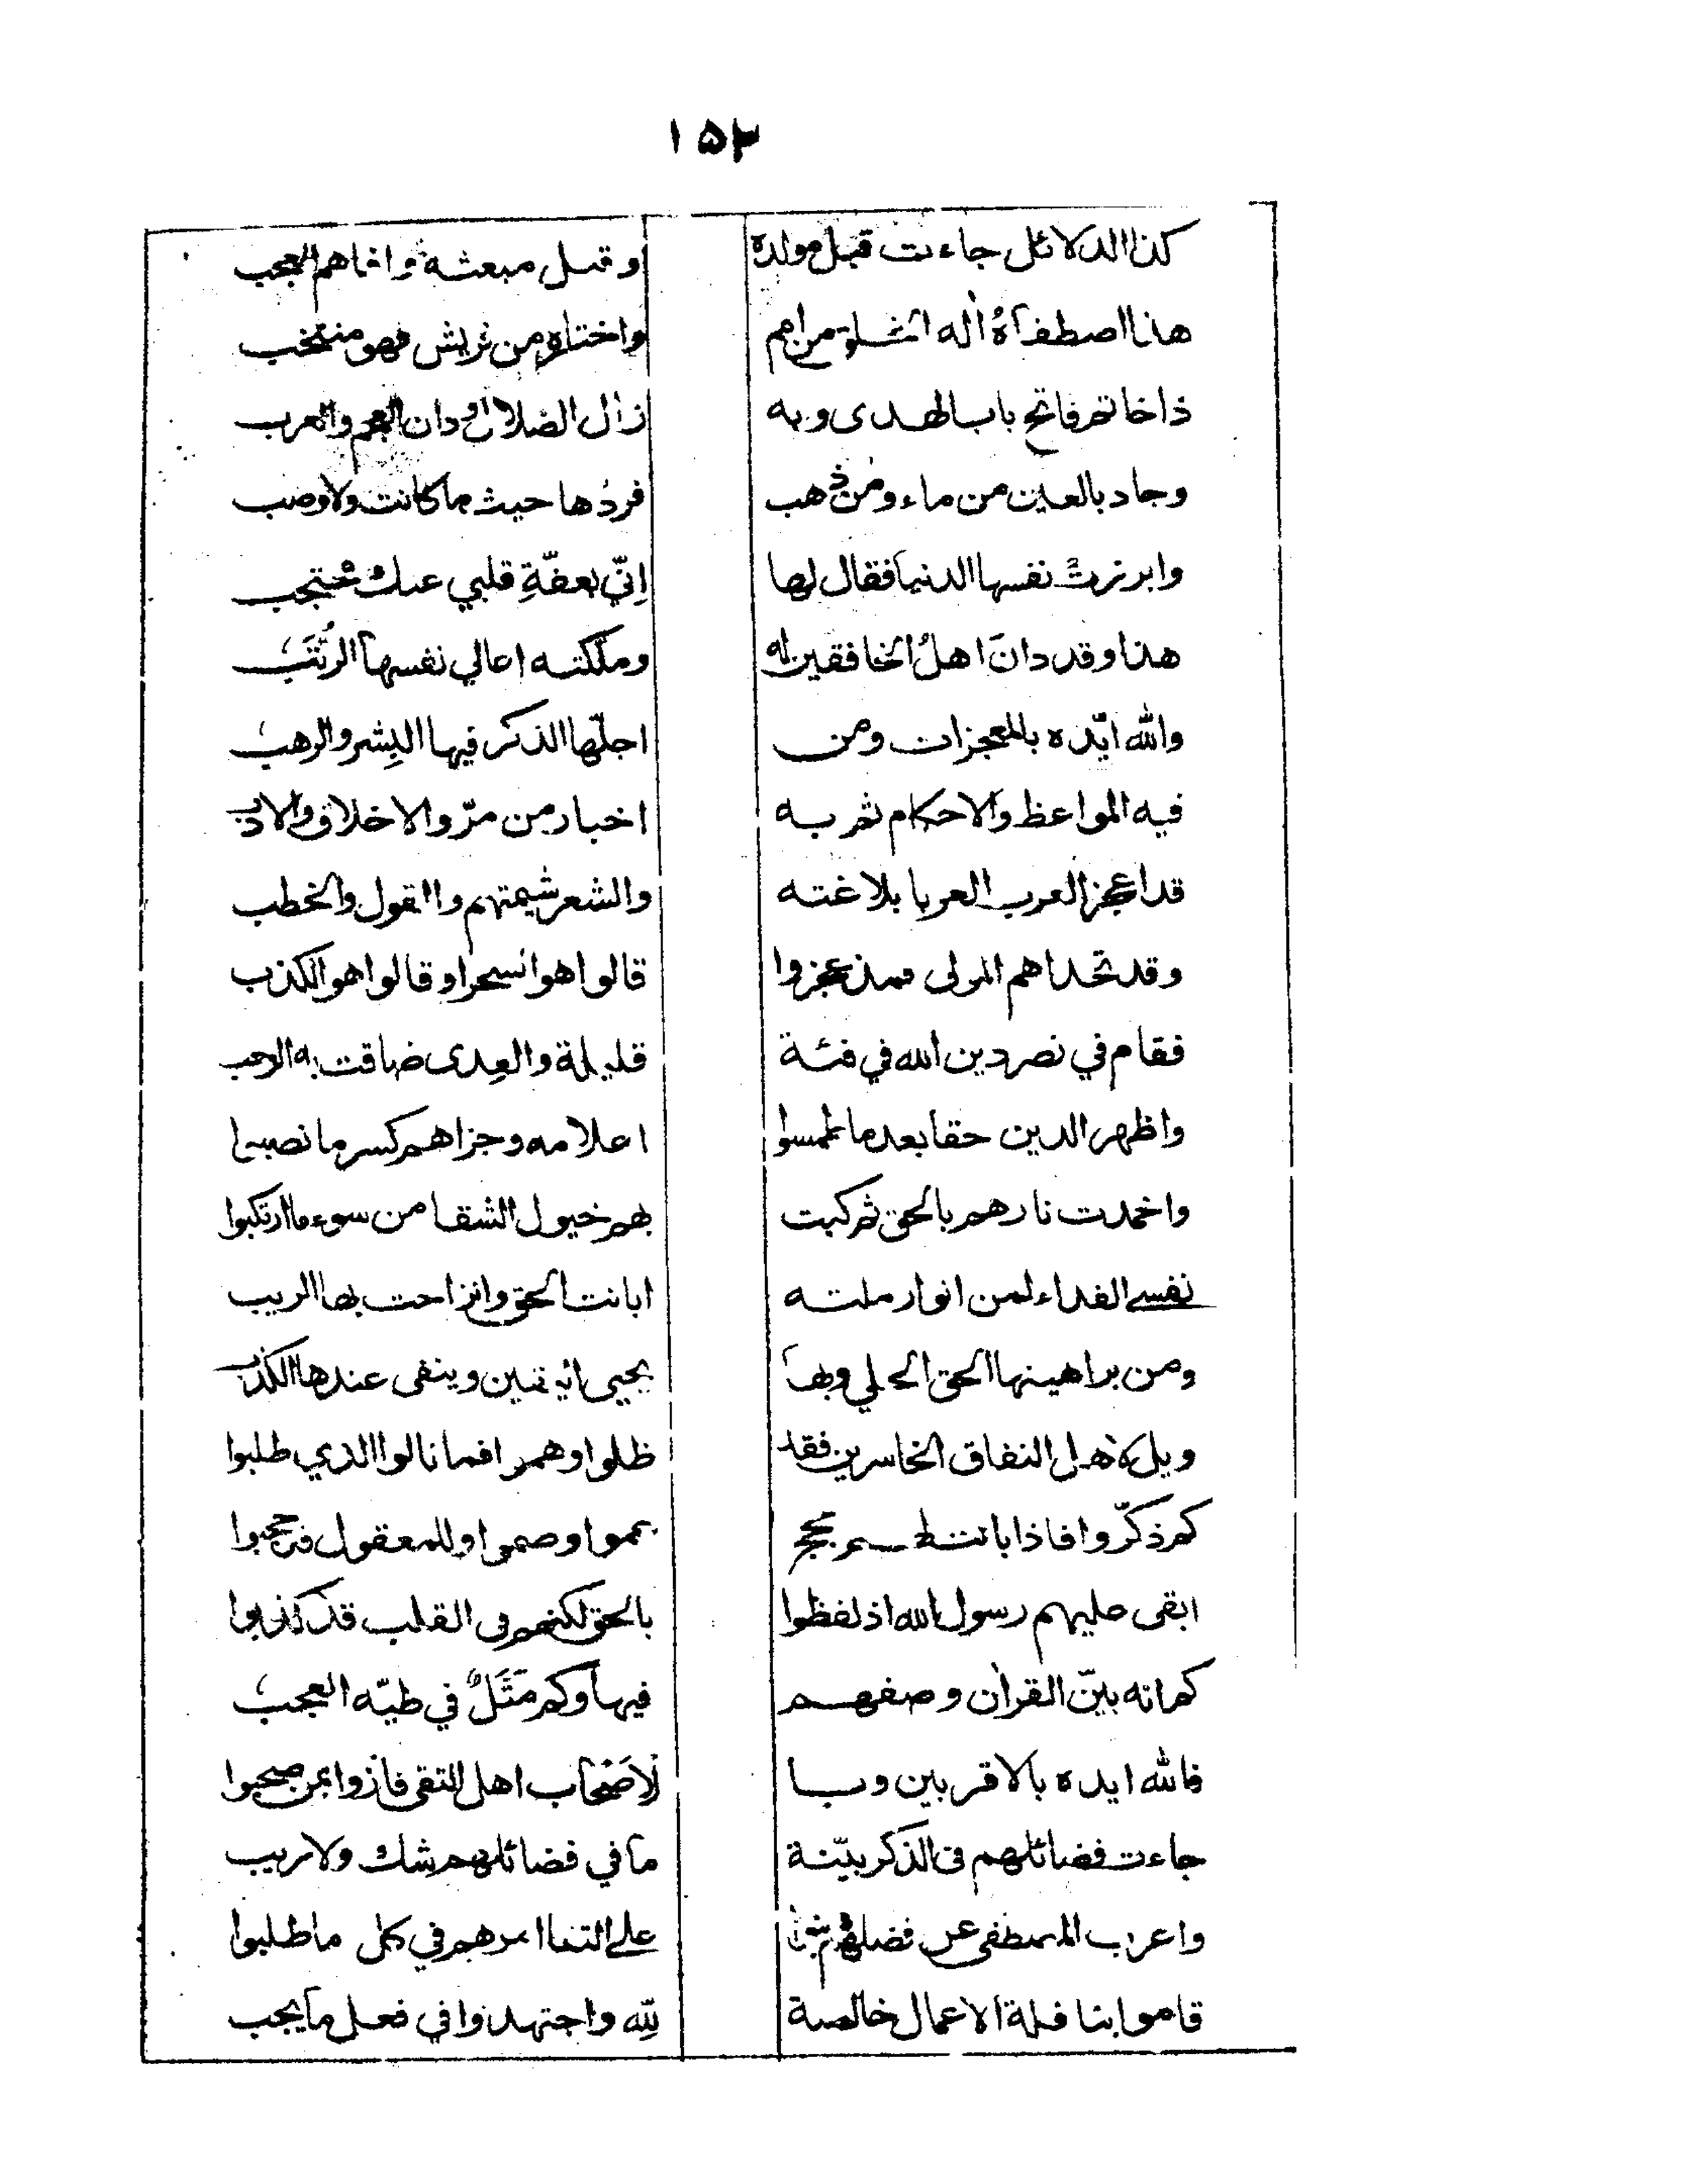 ١٥٢
كذا الدلائل جاءت قبل مولده
وقبل مبعثه وافاهم العجب
هذا اصطفاه اله الخلق من امم
واختاره من قريش فهو منتخب
ذا خاتم فاتح باب الهدى وبه
زال الضلال ودان العجم والعرب
وجاد بالعين من ماء ومن ذهب
فردها حيث ما كانت ولا وصب
وابرزت نفسها الدنيا فقال لها
اِنّي بعفّةِ قلبي عنك محتجب
هذا وقد دانَ اهلُ الخافقين له
وملّكته اعالي نفسها الرُتَبُ
والله ايّده بالمعجزات ومن
اجلّها الذكر فيها البِشر والرهبُ
فيه المواعظ والاحكام ثم به
اخبار من مرّ والاخلاق والادب
قد اعجز العرب العربا بلاغته
والشعر شيمتهم والقول والخطب
وقد تحداهم المولى فمذ عجزوا
قالوا هو السحر او قالوا هو الكذب
فقام في نصر دين الله في فئة
قليلة والعِدى ضاقت به الرحب
واظهر الدين حقا بعد ما طمسوا
اعلامه وجزاهم كسر ما نصبوا
واخمدت نارهم بالحق ثم كبت
بهم خيول الشقا من سوء ما ارتكبوا
نفسي الفداء لمن انوار ملته
ابانت الحق وانزاحت بها الريب
ومن براهينها الحق الجلي وبها
يحيى اليقين وينفى عندها الكذب
ويل لاهل النفاق الخاسرين فقد
ظلوا وهموا فما نالوا الذي طلبوا
كم ذكّروا فاذا بانت لهم حجج
عموا وصموا وللمعقول قد حجبوا
ابقى عليهم رسول الله اذ لفظوا
بالحق لكنهم في القلب قد كذبوا
كم اٰية بيّن القراٰن وصفهم
فيها وكم مَثَلٌ في طيّه العجبُ
فالله ايده بالاقربين وبا
لاَصْحاب اهل التقى فازوا بمن صحبوا
جاءت فضائلهم في الذكر بيّنة
ما في فضائلهم شك ولا ريب
واعرب المصطفى عن فضلهم
على التقا امرهم في كل ما طلبوا
قاموا بنافلة الاعمال خالصة
للهِ واجتهدوا في فعل ما يجب